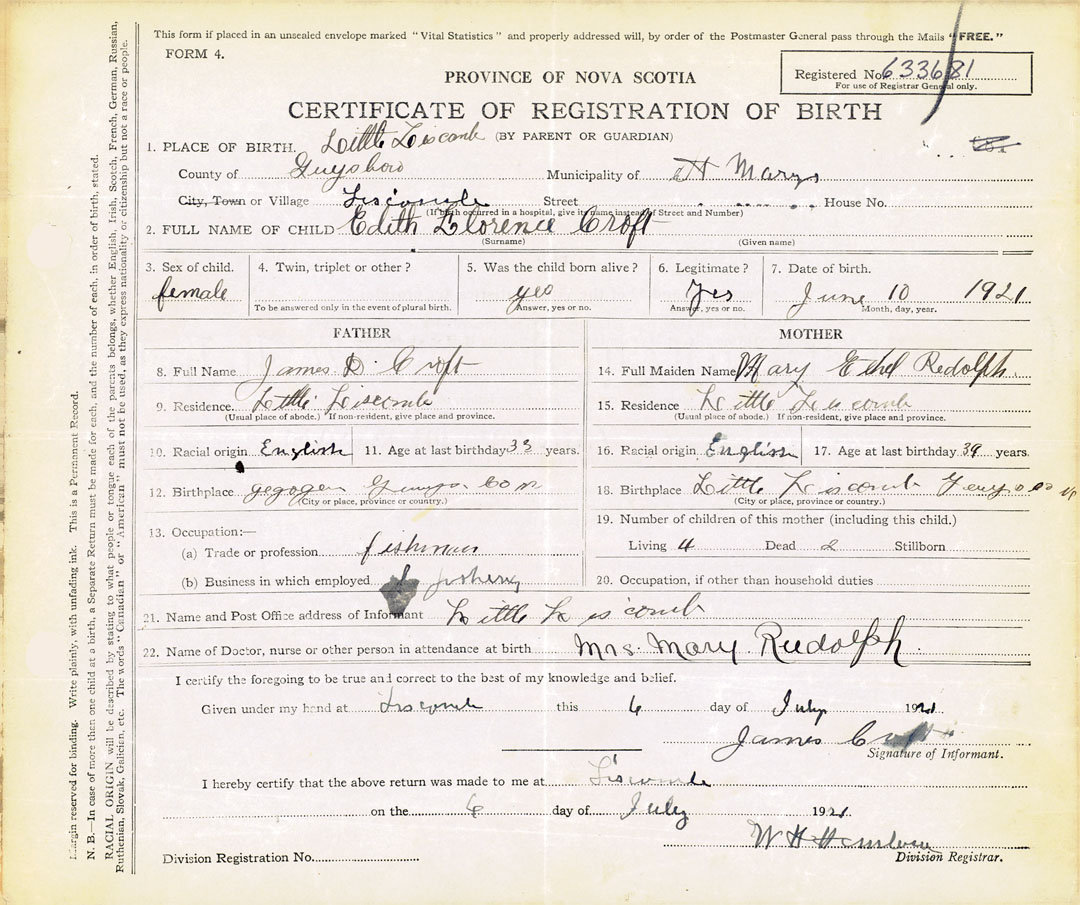 This form if placed in an unsealed envelope marked "Vital Statistics" and properly addressed will, by order of the Postmaster General pass through the Mails "FREE."
FORM 4.
Registered No. 633681
For use of Registrar General only.
PROVINCE OF NOVA SCOTIA
CERTIFICATE OF REGISTRATION OF BIRTH
(BY PARENT OR GUARDIAN)
1. PLACE OF BIRTH. Little Liscomb
County of Guysboro Municipality of St Marys
City, Town or Village Liscombe Street House No.
(If birth occurred in a hospital, give its name instead of Street and Number)
2. FULL NAME OF CHILD Edith Florence Croft
(Surname) (Given name)
3. Sex of child. 4. Twin, triplet or other? 5. Was the child born alive? 6. Legitimate? 7. Date of birth.
female yes Yes June 10 1921
To be answered only in the event of plural birth. Answer, yes or no. Answer, yes or no. Month, day, year.
FATHER
8. Full Name James D. Croft
9. Residence. Little Liscomb
(Usual place of abode.) If non-resident, give place and province.
10. Racial origin English 11. Age at last birthday 33 years.
12. Birthplace
(City or place, province or country.)
13. Occupation:—
(a) Trade or profession fishman
(b) Business in which employed fishery
MOTHER
14. Full Maiden Name Mary Ethel Rudolph
15. Residence Little Liscomb
(Usual place of abode.) If non-resident, give place and province.
16. Racial origin English 17. Age at last birthday 39 years.
18. Birthplace Little Liscomb
(City or place, province or country.)
19. Number of children of this mother (including this child.)
Living 4 Dead 2 Stillborn
20. Occupation, if other than household duties
21. Name and Post Office address of Informant Little Liscomb
22. Name of Doctor, nurse or other person in attendance at birth Mrs. Mary Rudolph.
I certify the foregoing to be true and correct to the best of my knowledge and belief.
Given under my hand at Liscomb this 6 day of July 1921
James Croft
Signature of Informant.
I hereby certify that the above return was made to me at Liscomb
on the 6 day of July 1921
W H
Division Registration No. Division Registrar.
Margin reserved for binding. Write plainly, with unfading ink. This is a Permanent Record.
N. B.—In case of more than one child at a birth, a Separate Return must be made for each, and the number of each, in order of birth, stated.
RACIAL ORIGIN will be described by stating to what people or tongue each of the parents belongs, whether English, Irish, Scotch, French, German, Russian,
Ruthenian, Slovak, Galician, etc. The words "Canadian" or "American" must not be used, as they express nationality or citizenship but not a race or people.